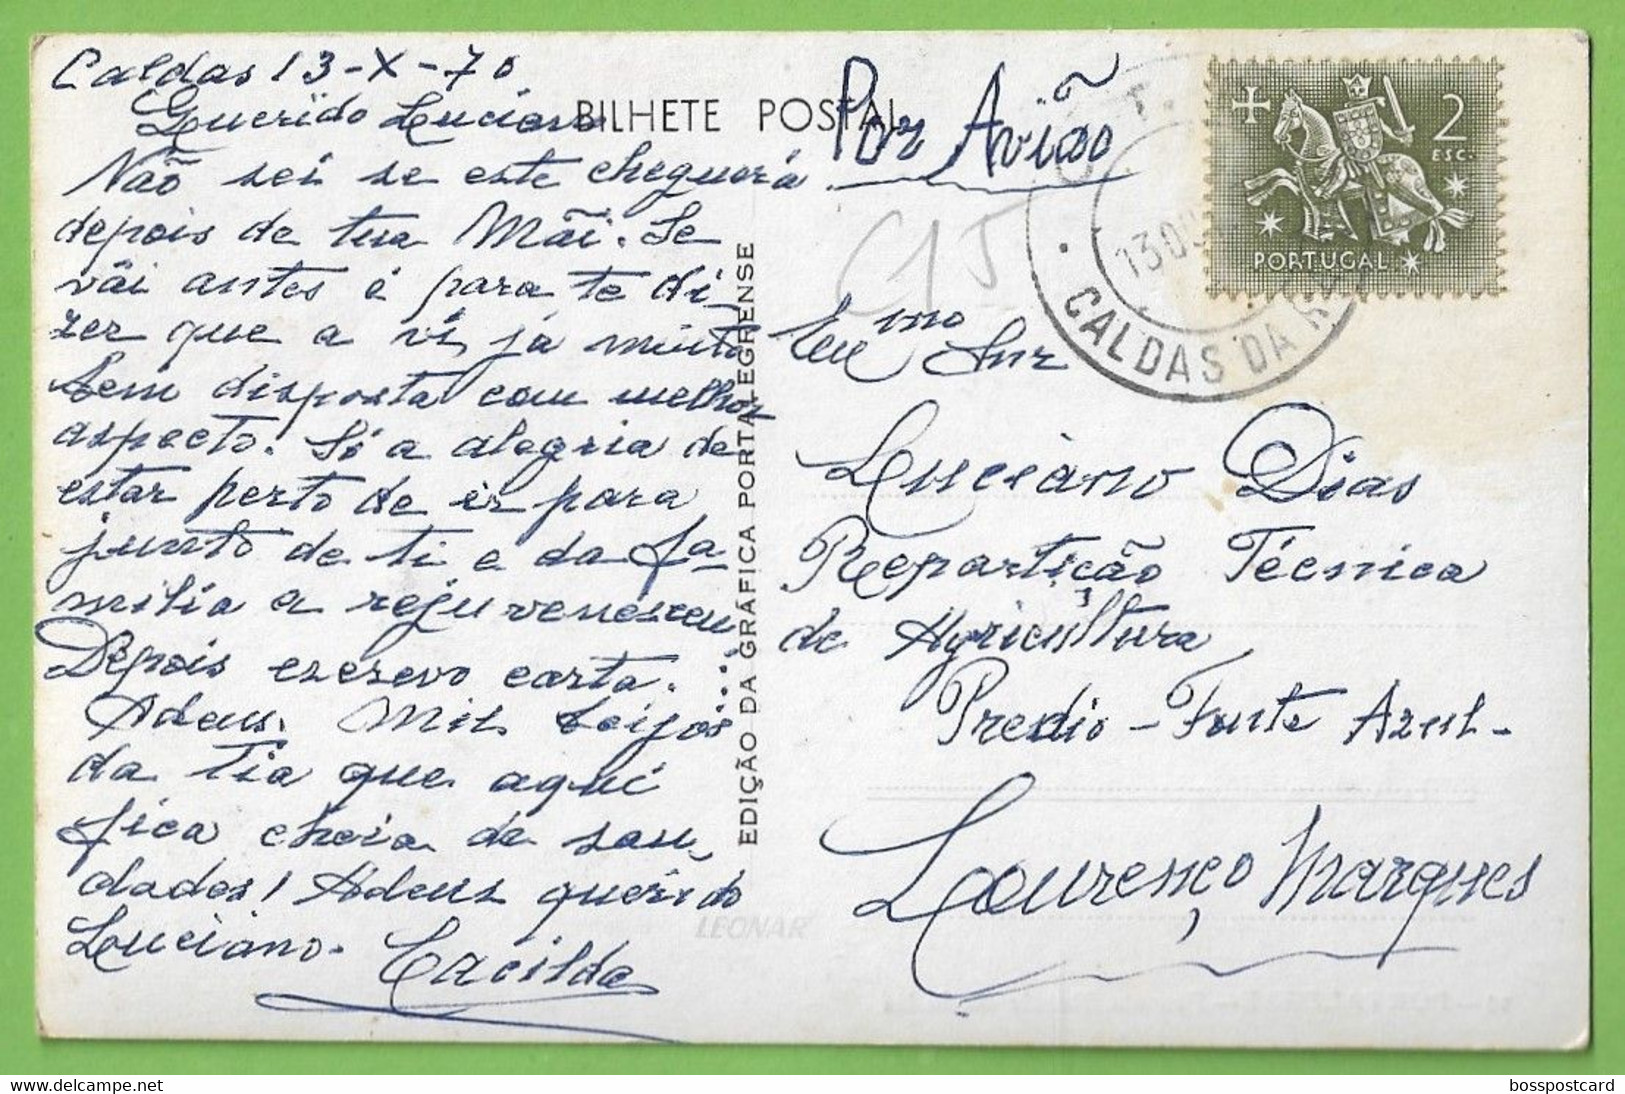 Caldas 13-X-70
Querido Luciano
Não sei se este cheguará
depois de tua Mãi. Se
vâi antes é para te di-
zer que a vi já muito
bem disposta com melhor
aspecto. Só a alegria de
estar perto de ir para
junto de ti e da fa-
milia a rejuvenesceu
Depois escrevo carta.
Adeus. Mil beijos
da tia que aqui
fica cheia de sau-
dades! Adeus querido
Luciano. Cacilda
BILHETE POSTAL
Por Avião
C15
EDIÇÃO DA GRÁFICA PORTALEGRENSE
LEONAR
2
ESC.
PORTUGAL
CALDAS DA R
13 OU
Exmo Snr
Luciano Dias
Repartição Técnica
de Agricultura
Predio - Fonte Azul -
Lourenço Marques
bosspostcard